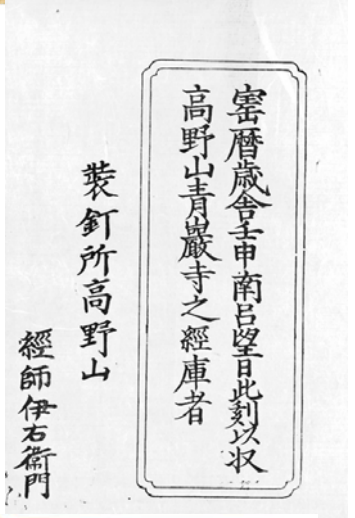 宝暦歳舎壬申南呂望日此刻以収
高野山青巖寺之經庫者
裝釘所高野山
經師伊右衞門